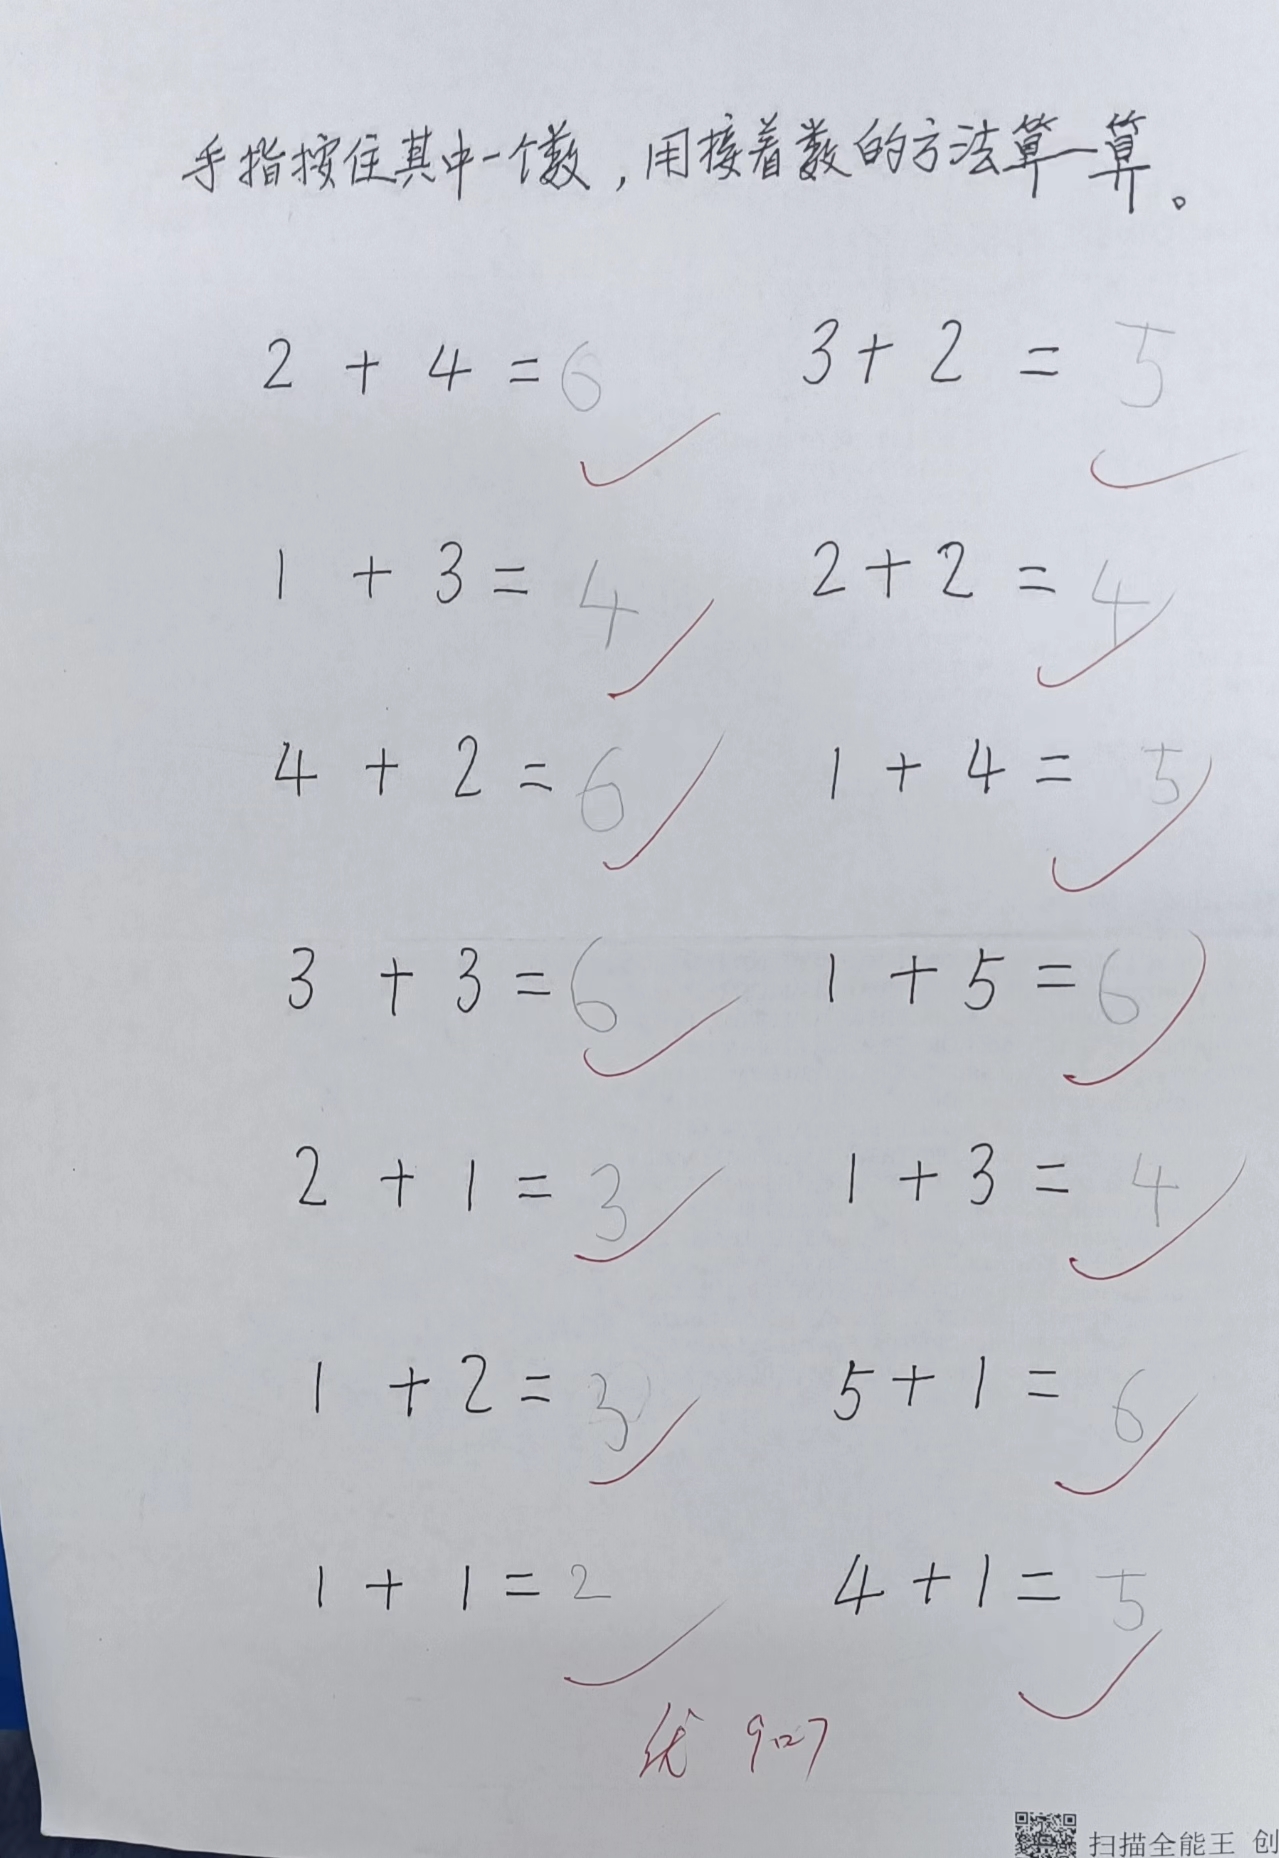 手指按住其中一个数，用接着数的方法算一算。
2 + 4 = 6 3 + 2 = 5
1 + 3 = 4 2 + 2 = 4
4 + 2 = 6 1 + 4 = 5
3 + 3 = 6 1 + 5 = 6
2 + 1 = 3 1 + 3 = 4
1 + 2 = 3 5 + 1 = 6
1 + 1 = 2 4 + 1 = 5
优
扫描全能王 创